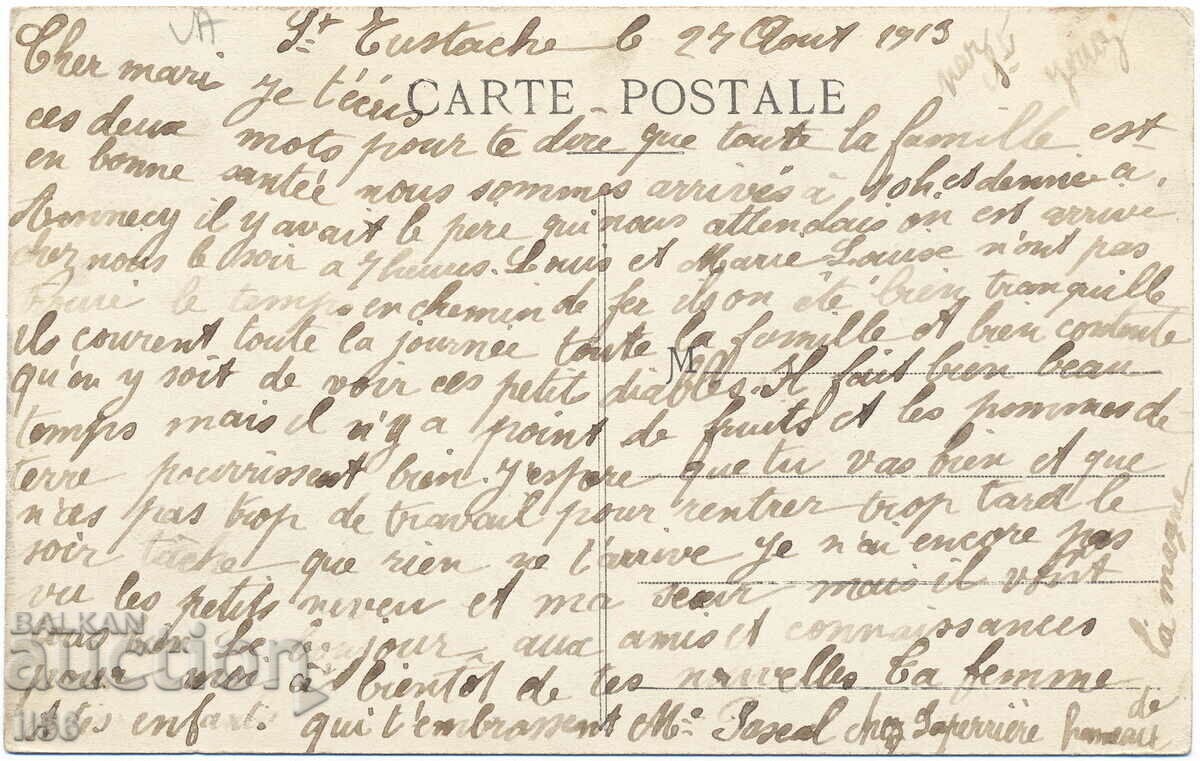 St Eustache le 27 Aout 1913
CARTE POSTALE
Cher mari je t'écris
ces deux mots pour te dire que toute la famille est
en bonne santée nous sommes arrivés à 10h et demie a
Annnecy il y avait le pere qui nous attendais on est arrive
chez nous le soir a 7 heures. Louis et Marie Louise n'ont pas
le temps en chemin de fer ils on été bien tranquille
ils courent toute la journée toute la famille et bien contente
M
qu'on y soit de voir ces petits diables. Il fait bien beau
temps mais il n'y a point de fruits et les pommes de
terre pourrissent bien. J'espere que tu vas bien et que
n'es pas trop de travail pour rentrer trop tard le
soir tâche que rien ne t'arrive Je n'ai encore pas
vu les petits neveu et ma seur mais il vont
bien Le bonjour aux amis et connaissances
pour moi à bientot de tes nouvelles Ta femme
et tes enfants. qui t'embrassent Me Pascal chez Laperrière
de
BALKAN
auction
1156